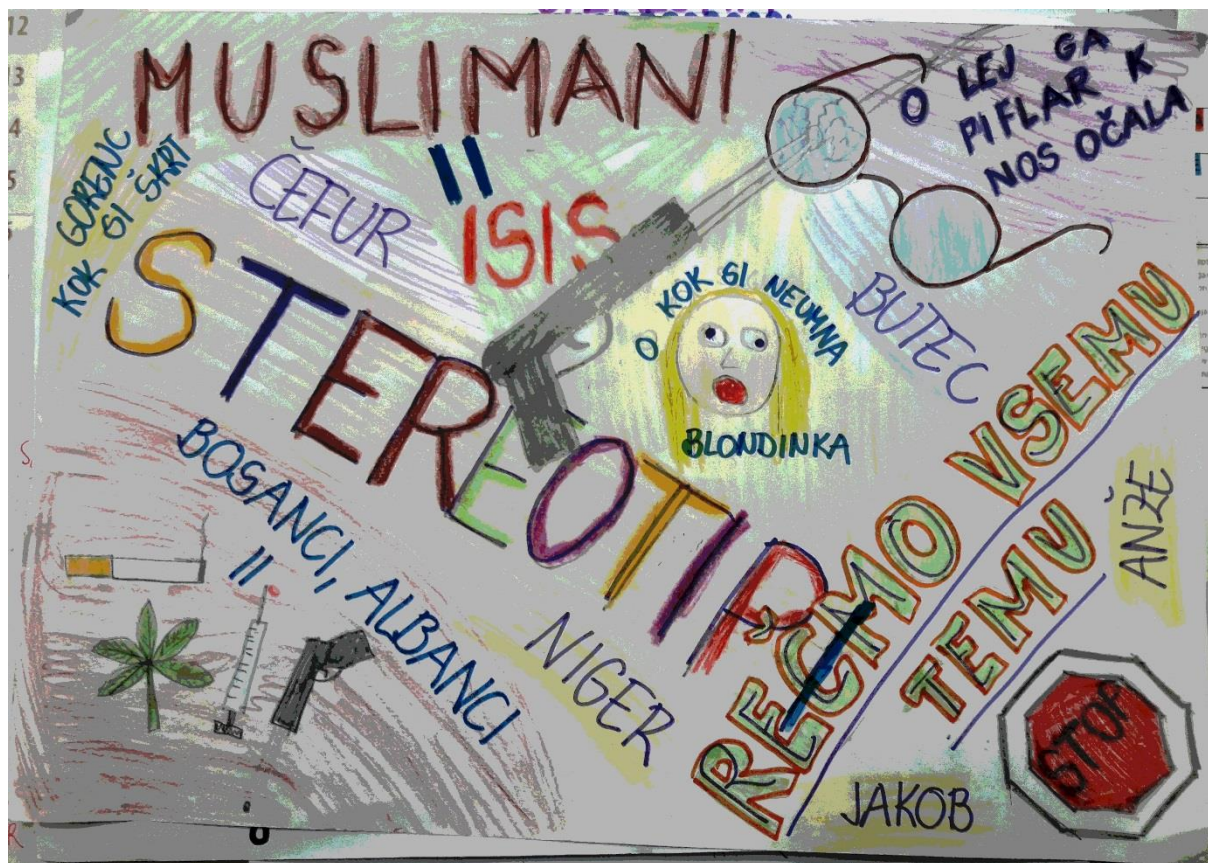 MUSLIMANI
II
ISIS
O LEJ GA
PIFLAR K
NOS OČALA
GORENC
KOK SI ŠKRT
ČEFUR
STEREOTIPI
O KOK SI NEUMNA
BLONDINKA
BUTEC
BOSANCI, ALBANCI
II
NIGER
RECMO VSEMU
TEMU
ANŽE
JAKOB
STOP
12
3
4
5